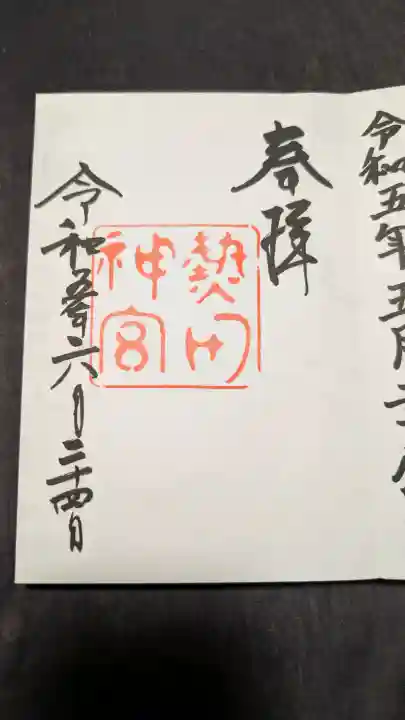 令和五年五月二
奉拝
熱田
神宮
令和五年六月二十四日